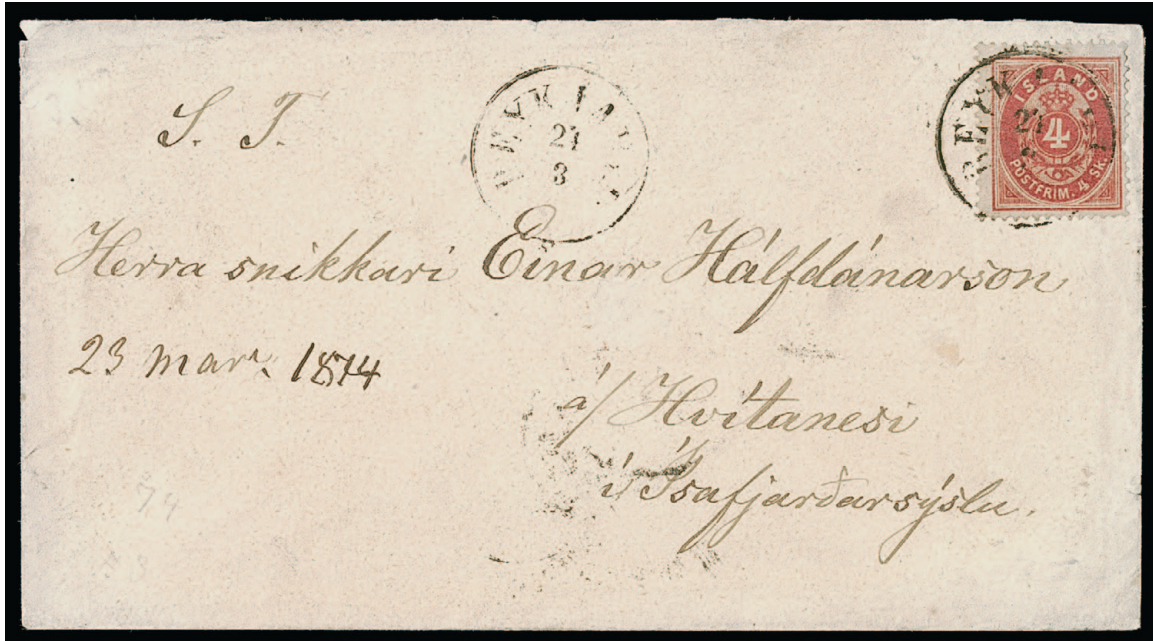 S. T.
REYKIAVIK
21
3
REYKIAVIK
21
3
ISLAND
4
POSTFRIM. 4 SK.
Herra snikkari Einar Hálfdánarson
23 mar. 1874
á/ Hvítanesi
í/ Ísafjarðarsýslu.
74